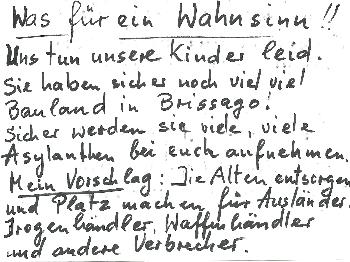 Was für ein Wahnsinn!!
Uns tun unsere Kinder leid.
Sie haben sicher noch viel viel
Bauland in Brissago!
Sicher werden sie viele, viele
Asylanthen bei euch aufnehmen.
Mein Vorschlag: Die Alten entsorgen
und Platz machen für Ausländer.
Drogenhändler, Waffenhändler
und andere Verbrecher.